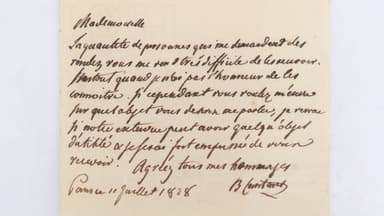 Mademoiselle
La quantité de personnes qui me demandent des
rendez vous me rend très difficile de les recevoir.
surtout quand je n'ai pas l'honneur de les
connoitre. Si cependant vous voulez m'écrire
sur quel objet vous desirez me parler, je verrai
si notre entrevue peut avoir quelqu'objet
d'utilité et je serai fort empressé de vous
recevoir. Agréez tous mes hommages
Paris ce 11 Juillet 1828 B Constant